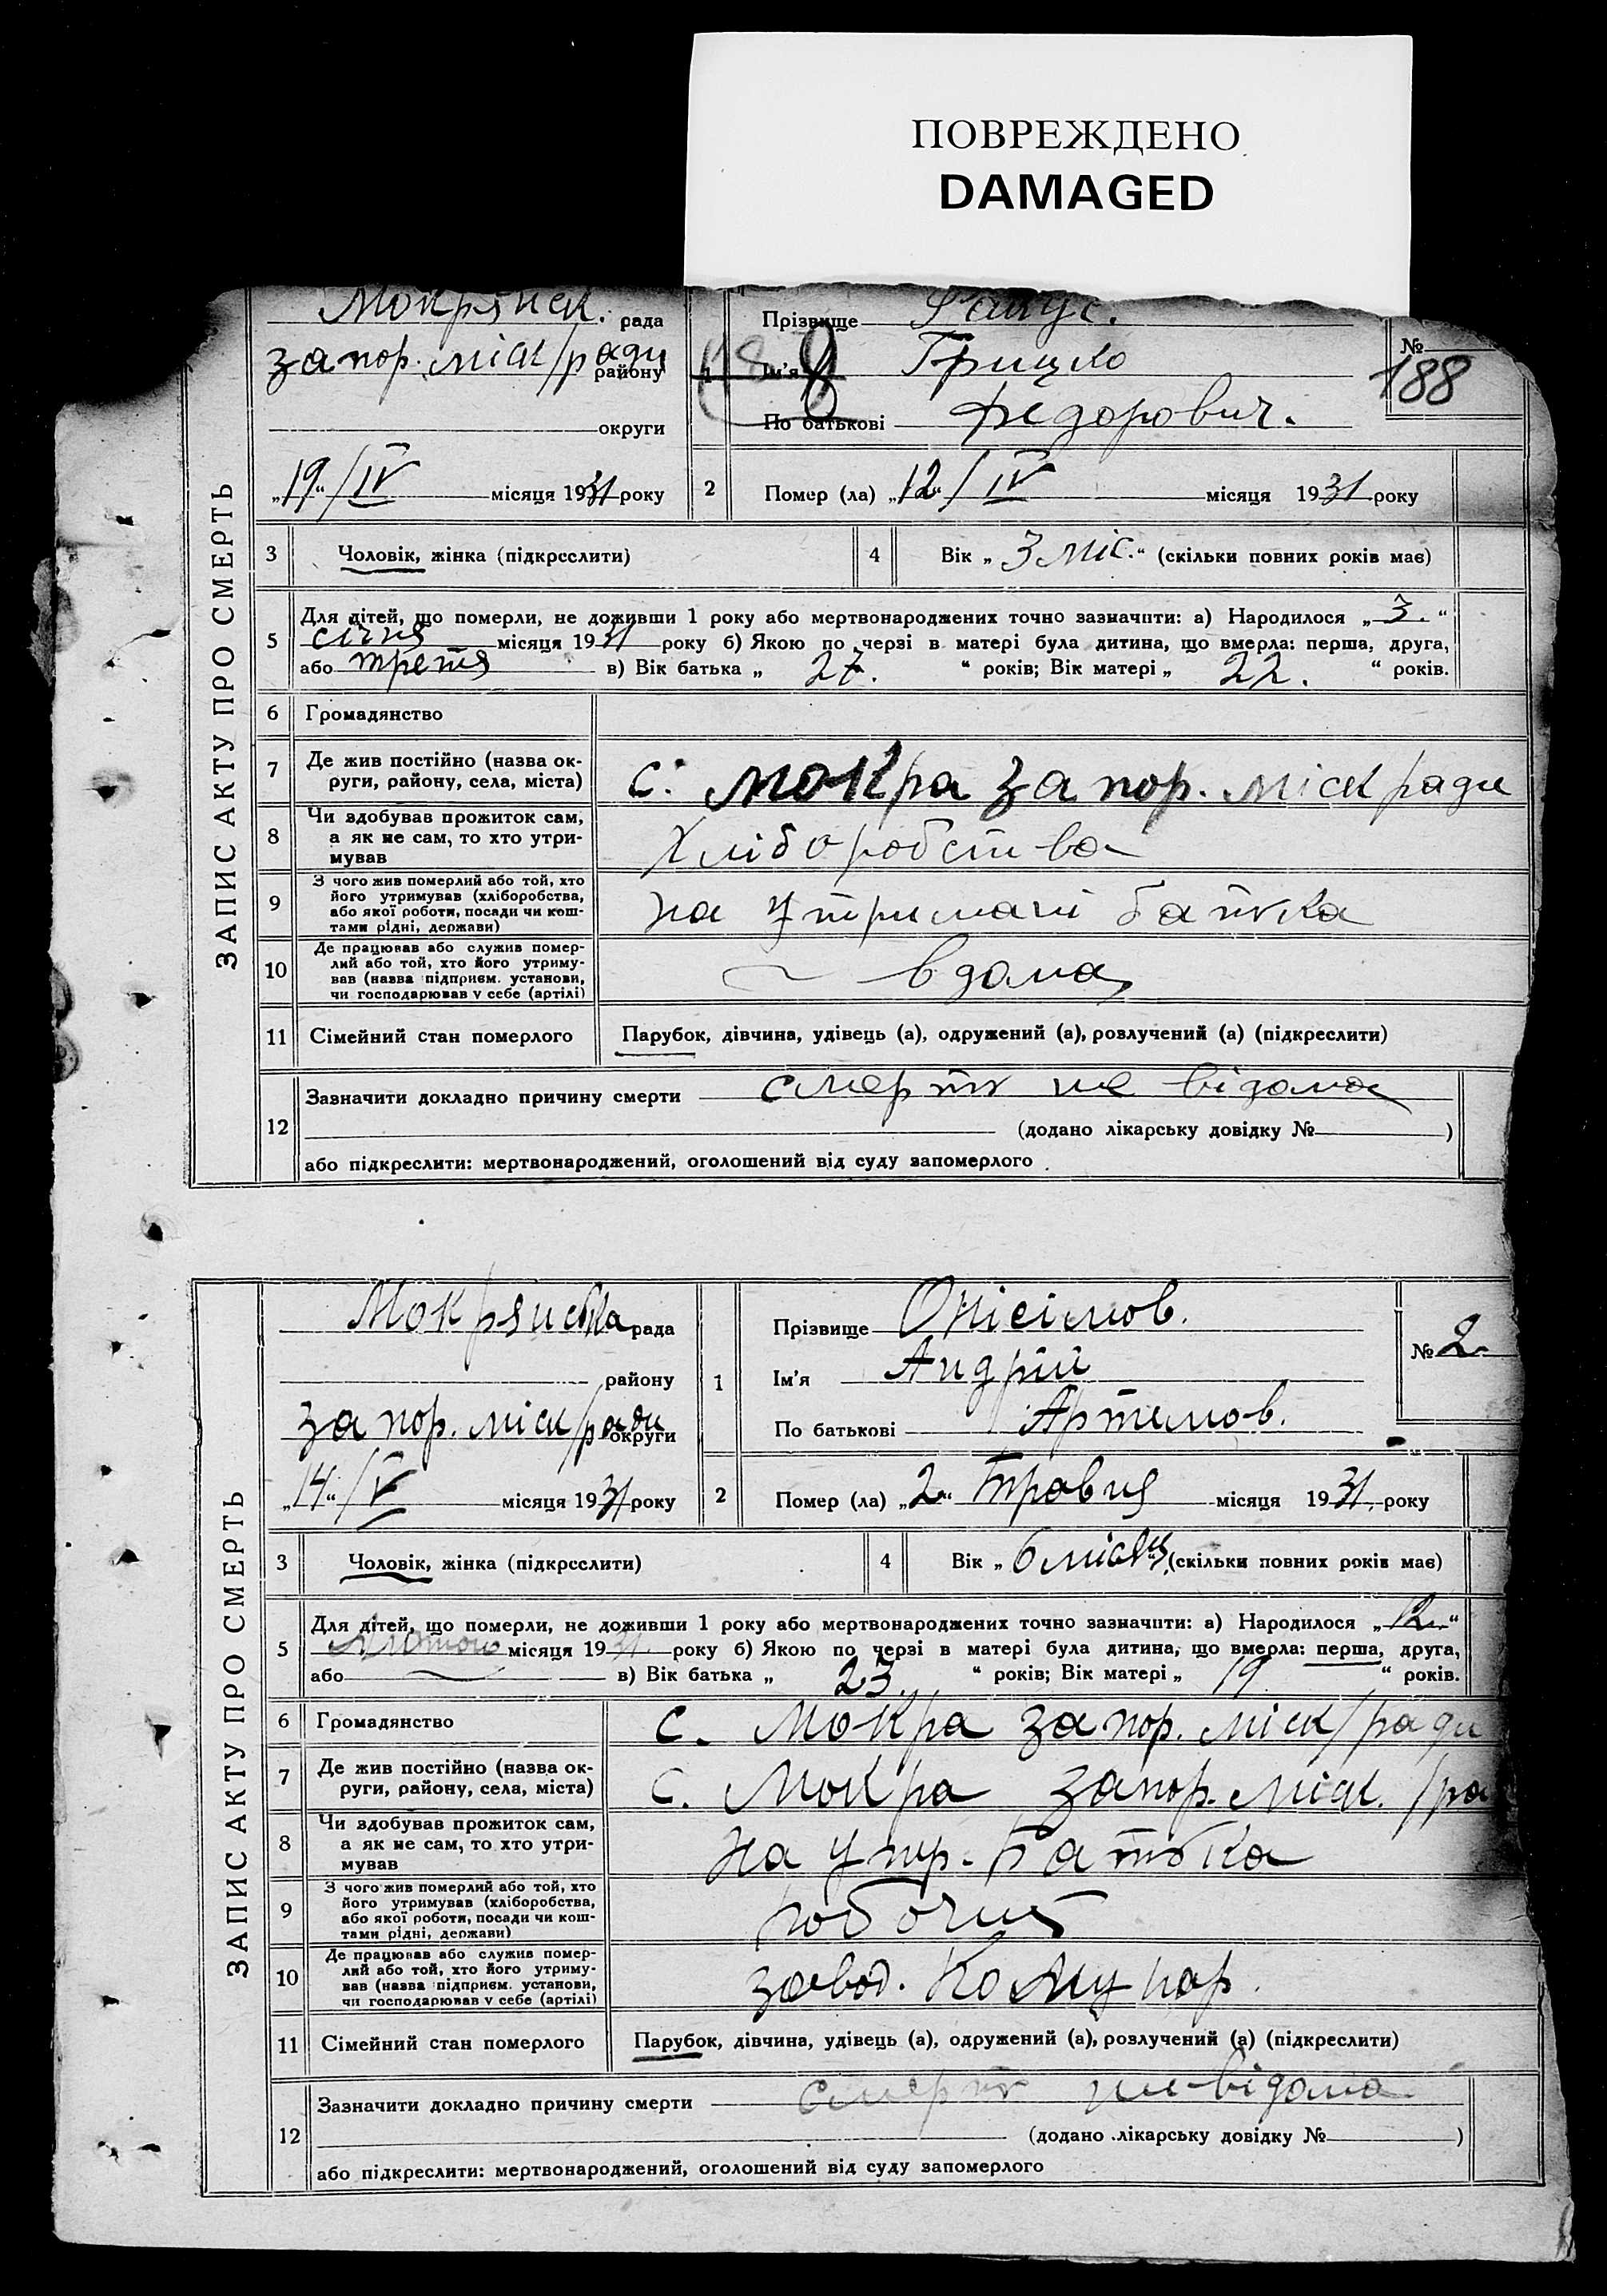 ПОВРЕЖДЕНО
DAMAGED
ЗАПИС АКТУ ПРО СМЕРТЬ
Мокрянск. рада
запор. міск/ради району
округи
„19“/IV місяця 1931 року
1
Прізвище
Ім'я Грицко
По батькові Федорович.
№ 188
2 Помер (ла) „12“/IV місяця 1931 року
3 Чоловік, жінка (підкреслити)
4 Вік „3 міс.“ (скільки повних років має)
5 Для дітей, що померли, не доживши 1 року або мертвонароджених точно зазначити: а) Народилося „3.“
січня місяця 1931 року б) Якою по черзі в матері була дитина, що вмерла: перша, друга,
або третя в) Вік батька „27.“ років; Вік матері „22.“ років.
6 Громадянство
7 Де жив постійно (назва округи, району, села, міста) с. Мокра запор. міск ради
8 Чи здобував прожиток сам, а як не сам, то хто утримував Хліборобства
9 З чого жив померлий або той, хто його утримував (хліборобства, або якої роботи, посади чи коштами рідні, держави) на утримані батька
10 Де працював або служив померлий або той, хто його утримував (назва підприєм. установи, чи господарював у себе (артілі) вдома
11 Сімейний стан померлого Парубок, дівчина, удівець (а), одружений (а), розлучений (а) (підкреслити)
12 Зазначити докладно причину смерти смерть не відома
(додано лікарську довідку № )
або підкреслити: мертвонароджений, оголошений від суду запомерлого
ЗАПИС АКТУ ПРО СМЕРТЬ
Мокрянська рада
району
запор. міск/ради округи
„14“/V місяця 1931 року
1
Прізвище Онісімов.
Ім'я Андрій
По батькові Артемов.
№ 2
2 Помер (ла) „2“ Травня місяця 1931. року
3 Чоловік, жінка (підкреслити)
4 Вік „6 місяц. (скільки повних років має)
5 Для дітей, що померли, не доживши 1 року або мертвонароджених точно зазначити: а) Народилося „12“
Лютого місяця 1931. року б) Якою по черзі в матері була дитина, що вмерла: перша, друга,
або в) Вік батька „23.“ років; Вік матері „19“ років.
6 Громадянство с. Мокра запор. міск/ради
7 Де жив постійно (назва округи, району, села, міста) с. Мокра запор. міск. /ра
8 Чи здобував прожиток сам, а як не сам, то хто утримував на утр. батька
9 З чого жив померлий або той, хто його утримував (хліборобства, або якої роботи, посади чи коштами рідні, держави) робочий
10 Де працював або служив померлий або той, хто його утримував (назва підприєм. установи, чи господарював у себе (артілі) завод. Комунар
11 Сімейний стан померлого Парубок, дівчина, удівець (а), одружений (а), розлучений (а) (підкреслити)
12 Зазначити докладно причину смерти смерть не відома.
(додано лікарську довідку № )
або підкреслити: мертвонароджений, оголошений від суду запомерлого